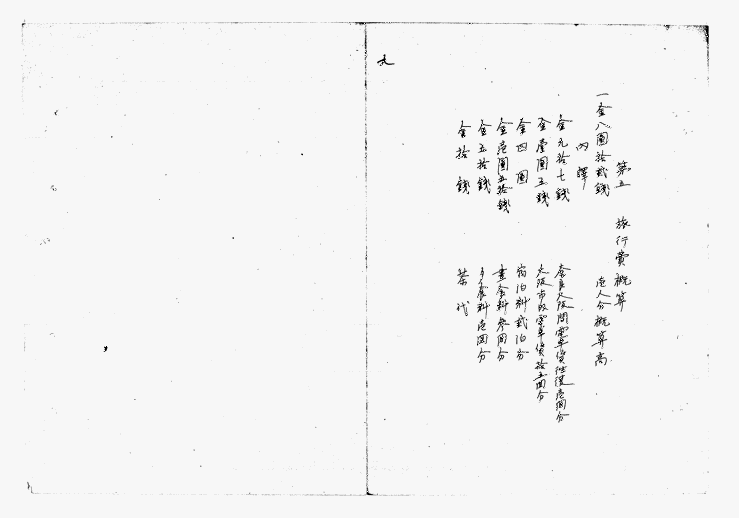 第五　旅行費概算
一金八圓拾貳錢　壱人分概算高
内譯
金九拾七錢　奈良大阪間電車賃往復壱回分
金壹圓五錢　大阪市内電車賃拾五回分
金四圓　宿泊料貳泊分
金壱圓五拾錢　晝食料參回分
金五拾錢　夕食料壱回分
金拾錢　茶代
九